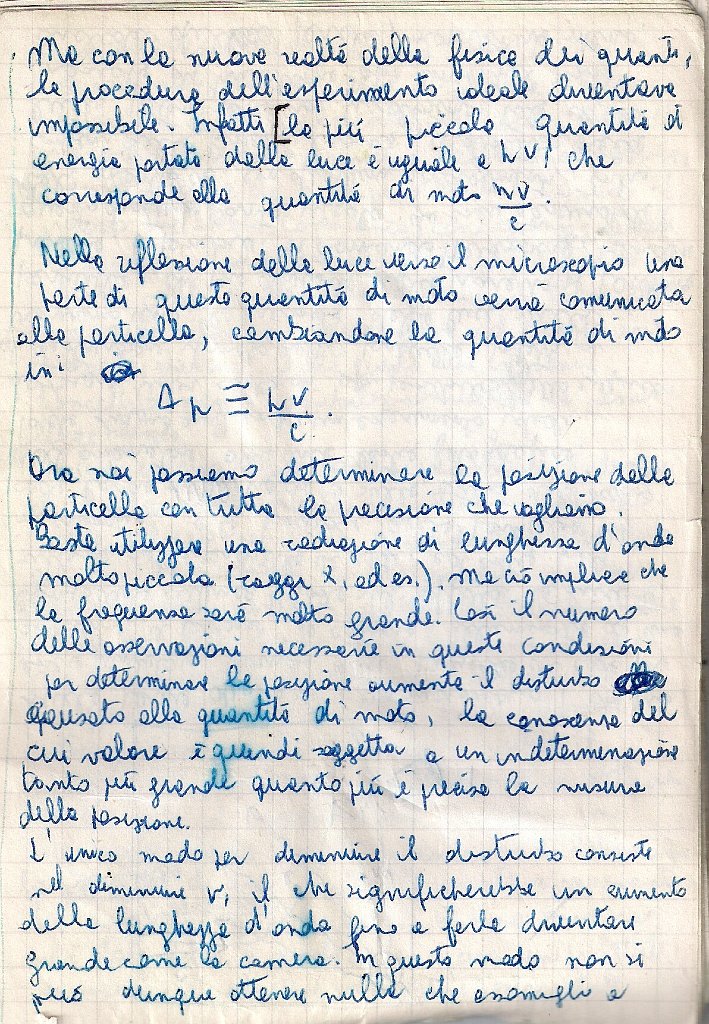 Ma con la nuova realtà della fisica dei quanti,
la procedura dell'esperimento ideale diventava
impossibile. Infatti [la più piccola quantità di
energia portata dalla luce è uguale a hν, che
corrisponde alla quantità di moto hν/c.
Nella riflessione della luce verso il microscopio una
parte di questa quantità di moto verrà comunicata
alla particella, cambiandone la quantità di moto
in:
Δp ≅ hν/c.
Ora noi possiamo determinare la posizione della
particella con tutta la precisione che vogliamo.
Basta utilizzare una radiazione di lunghezza d'onda
molto piccola (raggi X, ad es.). Ma ciò implica che
la frequenza sarà molto grande. Così il numero
delle osservazioni necessarie in queste condizioni
per determinare la posizione aumenta il disturbo
causato alla quantità di moto, la conoscenza del
cui valore è quindi soggetta a un indeterminazione
tanto più grande quanto più è precisa la misura
della posizione.
L'unico modo per diminuire il disturbo consiste
nel diminuire ν, il che significherebbe un aumento
della lunghezza d'onda fino a farla diventare
grande come la camera. In questo modo non si
può dunque ottenere nulla che assomigli a